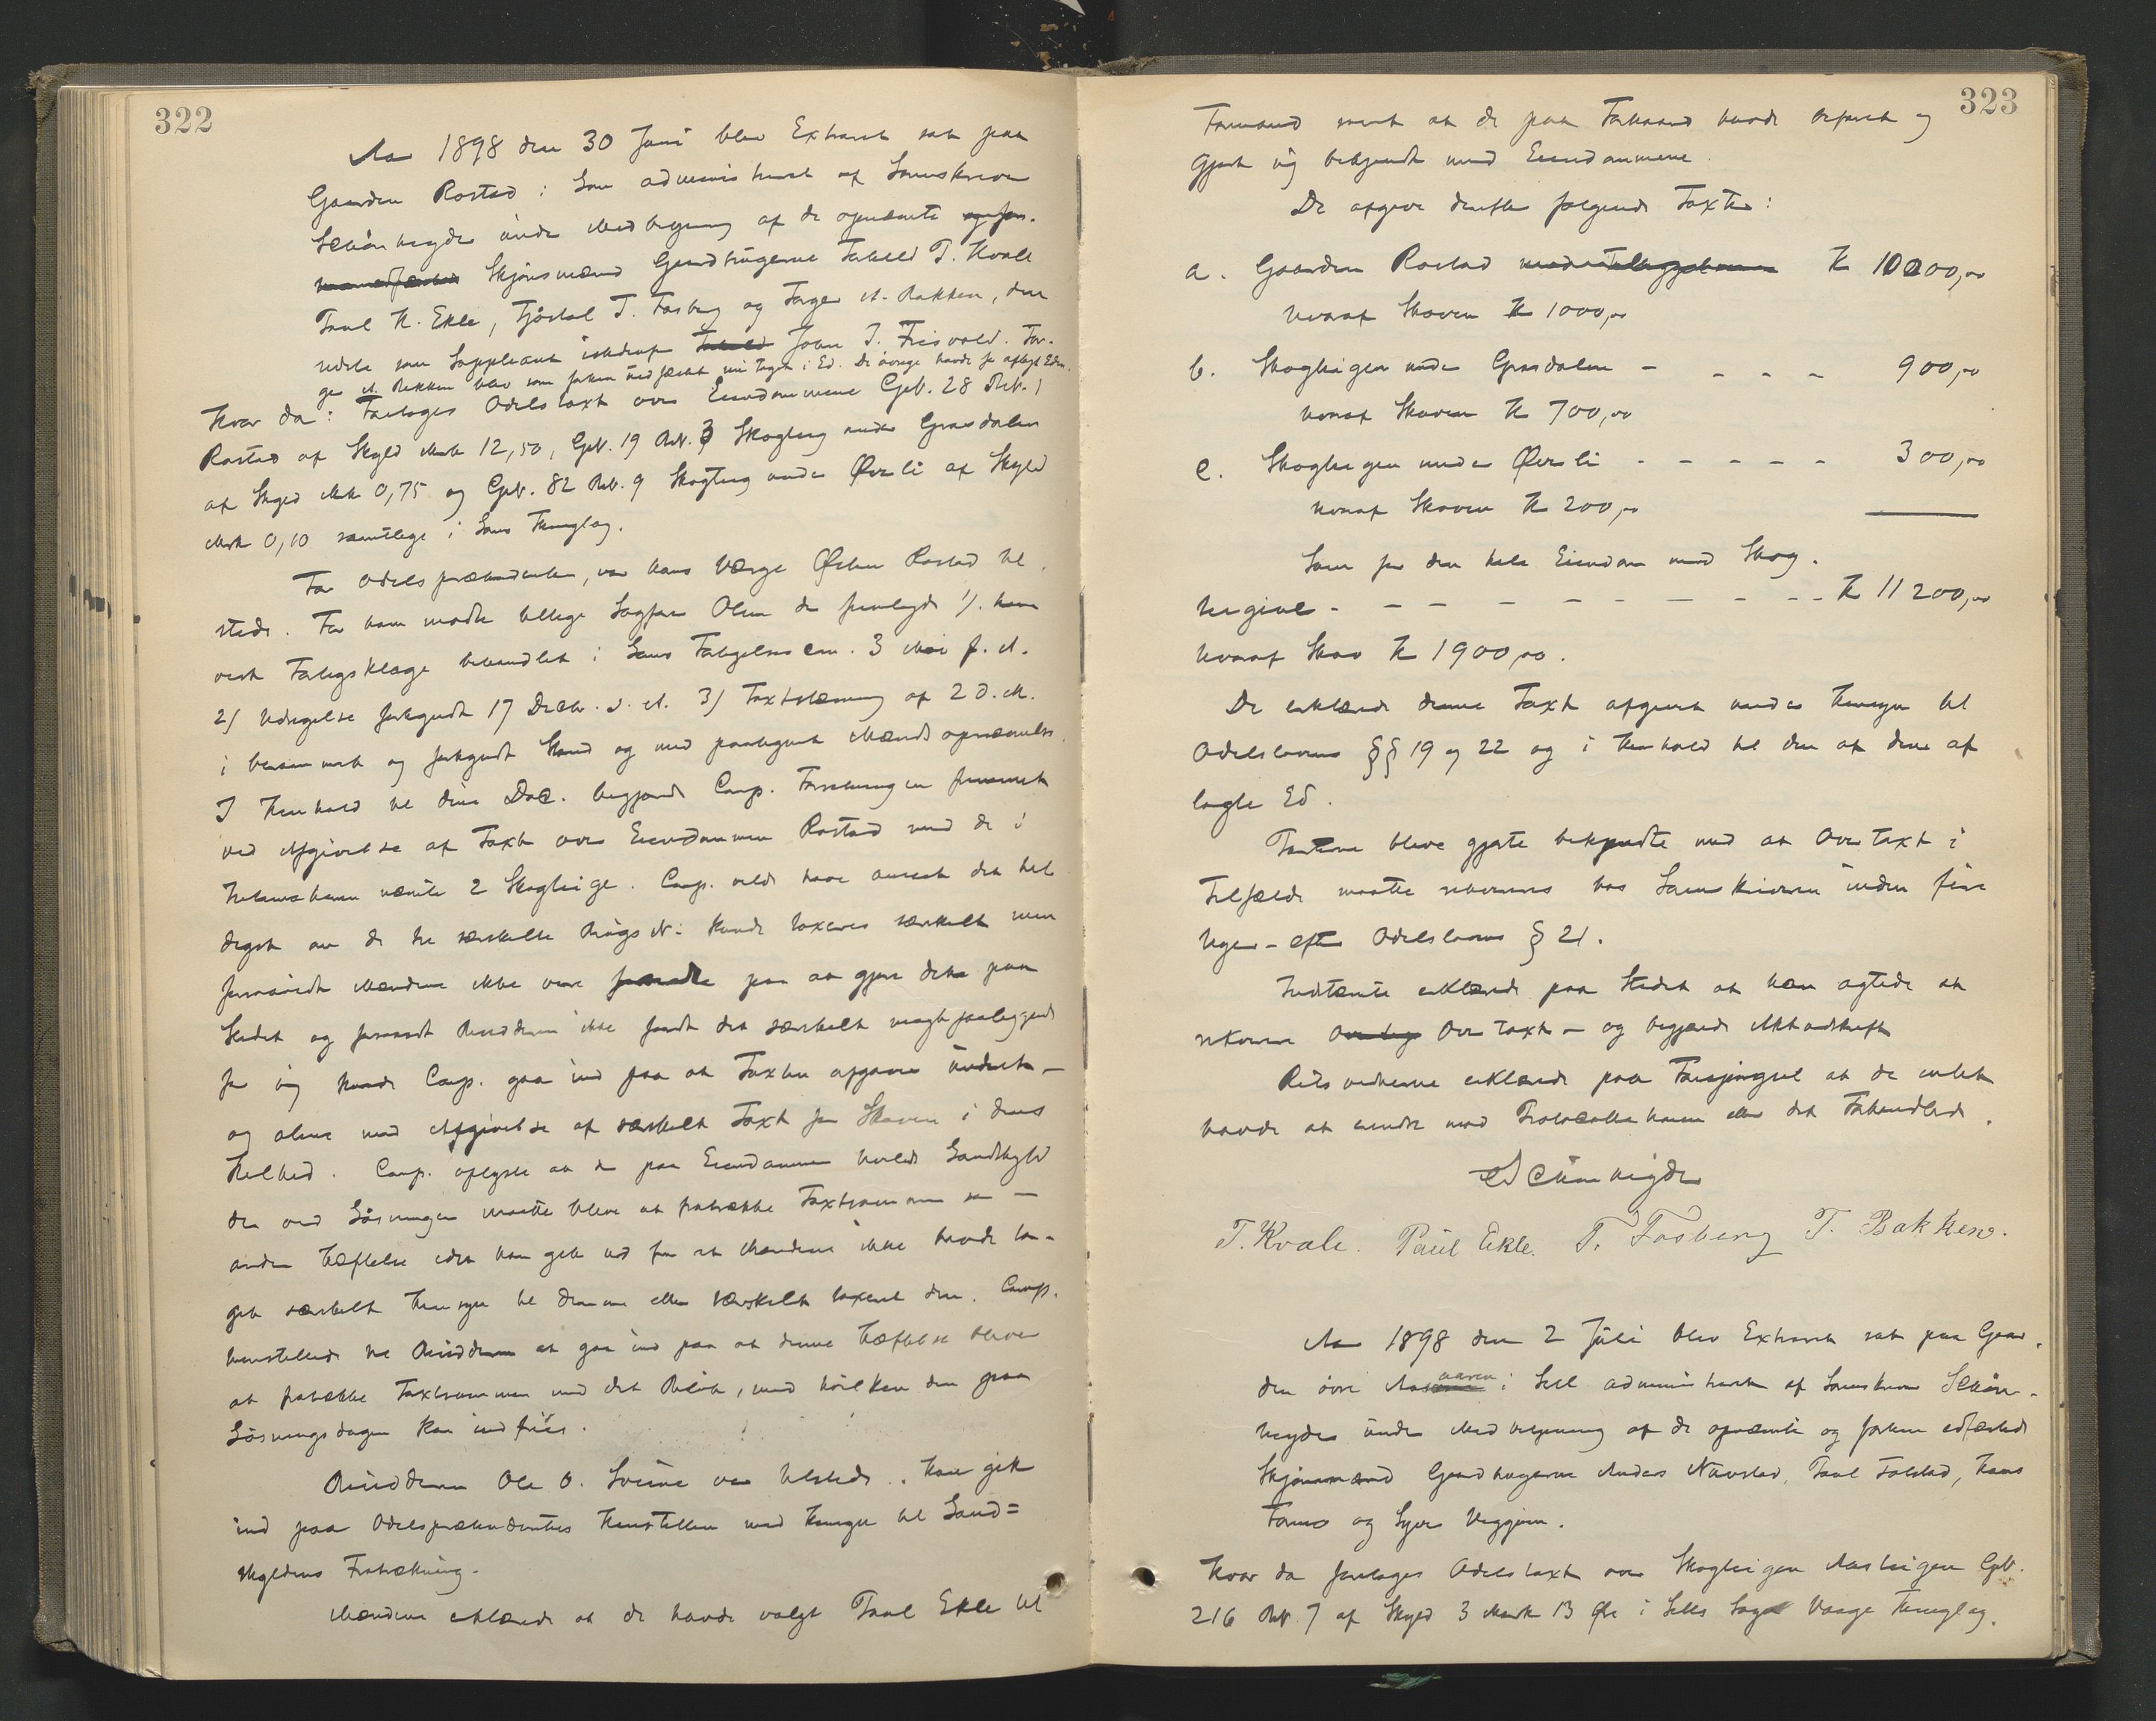 322
Aar 1898 den 30 Juni blev Extraret sat paa
Gaarden Rostad i Lom administreret af Sorenskriver
Schönheyder under Medbetjening af de opnævnte
Skjönsmænd Gaardbrugerne T. Kvale
Paul K. Ekle, T. Fosberg og Torger Bakken, den
sidste som Suppleant istedenfor John J. Frisvold. Tor-
ger Bakken blev som forhen ikke i Ed. De övrige havde før aflagt Eden.
Hvor da: Foretoges Odelstaxt over Eiendommene Gn. 28 Bn. 1
Rostad af Skyld Mark 12,50, Gn. 19 Bn. 3 Skogteig under Grasdalen
af Skyld Mk 0,75 og Gn. 82 Bn. 9 Skogteig under Øvreli af Skyld
Mark 0,10 samtlige i Loms Thinglag.
For Odelsprætendenten, var hans Værge Østen Rostad til-
stede. For ham mødte tillige Sagfører Olsen der fremlagde 1/.
Forligsklage behandlet i Loms Forligelsescom. 3 Mai f. A.
2/ Udsigelse forkyndt 17 Decbr. s. A. 3/ Taxtstævning af 2 d. M.
i beskrevet og forkyndt Stand og med paategnet Mændsopnævnelse.
I Henhold til disse Doc. begjærede Comp. Forretningen fremmet
ved Afgivelse af Taxt over Eiendommen Rostad med de i
nævnte 2 Skogteige. Comp. vilde have anseet det hel-
digst om de tre særskilte Brugs N: kunde taxeres særskilt men
forsaavidt Mændene ikke vare paa at gjøre dette paa
Stedet og forsaavidt Besidderen ikke fandt det særskilt magtpaaliggende
for sig kunde Comp. gaa ind paa at Taxten afgaves underet —
og alene med Afgivelse af særskilt Taxt for Skoven i dens
Helhed. Comp. oplyste at den paa Eiendommen hvilede Landskyld
der ved Løsningen maatte blive at fratrække Taxtsummen som —
anden Hæftelse idet han gik ud fra at Mændene ikke havde ta-
get særskilt Hensyn til denne eller særskilt taxeret den. Comp.
henstillede til Besidderen at gaa ind paa at denne Hæftelse bliver
at fratrække Taxtsummen med det Beløb, med hvilken den paa
Løsningsdagen kan indfries.
Besidderen Ole O. Sveine var tilstede. Han gik
ind paa Odelsprætendentens Henstillen med Hensyn til Land=
skyldens Fratrækning.
Mændene erklærede at de havde valgt Paul Ekle til
323
Formand samt at de paa Forhaand havde befaret og
gjort sig bekjendt med Eiendommene.
De afgave derefter følgende Taxter:
a. Gaarden Rostad Kr 10000,00
hvoraf Skoven Kr 1000,00
b. Skogteigen under Grasdalen - - - - 900,00
hvoraf Skoven Kr 700,00
c. Skogteigen under Øvreli - - - - - 300,00
hvoraf Skoven Kr 200,00
Sum for den hele Eiendom med Skog-
teigene - - - - - - - - - Kr 11200,00
hvoraf Skov Kr 1900,00.
De erklærede denne Taxt afgivet under Hensyn til
Odelslovens §§ 19 og 22 og i Henhold til den af dem af
lagte Ed.
Parterne bleve gjorte bekjendte med at Overtaxt i
Tilfælde maatte rekvireres hos Sorenskriveren inden fire
Uger - efter Odelslovens § 21.
Indstævnte erklærede paa Stedet at han agtede at
rekvirere Overtaxt - og begjærede Aktudskrift
Retsvidnerne erklærede paa Forespørgsel at de intet
havde at erindre mod Protocollationen eller det Forhandlede.
Schönheyder
T. Kvale. Paul Ekle. T. Fosberg T. Bakken.
Aar 1898 den 2 Juli blev Extraret sat paa Gaar-
den övre Aasaaren i Sell administreret af Sorenskriver Schön-
heyder under Medbetjening af de opnævnte og forhen edfæstede
Skjönsmænd Gaardbrugerne Anders Navstad, Paul Tolstad, Hans
Formo og Syver Veggum.
Hvor da foretoges Odelstaxt over Skogteigen Aasteigen Gn.
216 Bn. 7 af Skyld 3 Mark 13 Øre i Sells Sogn Vaage Thinglag.